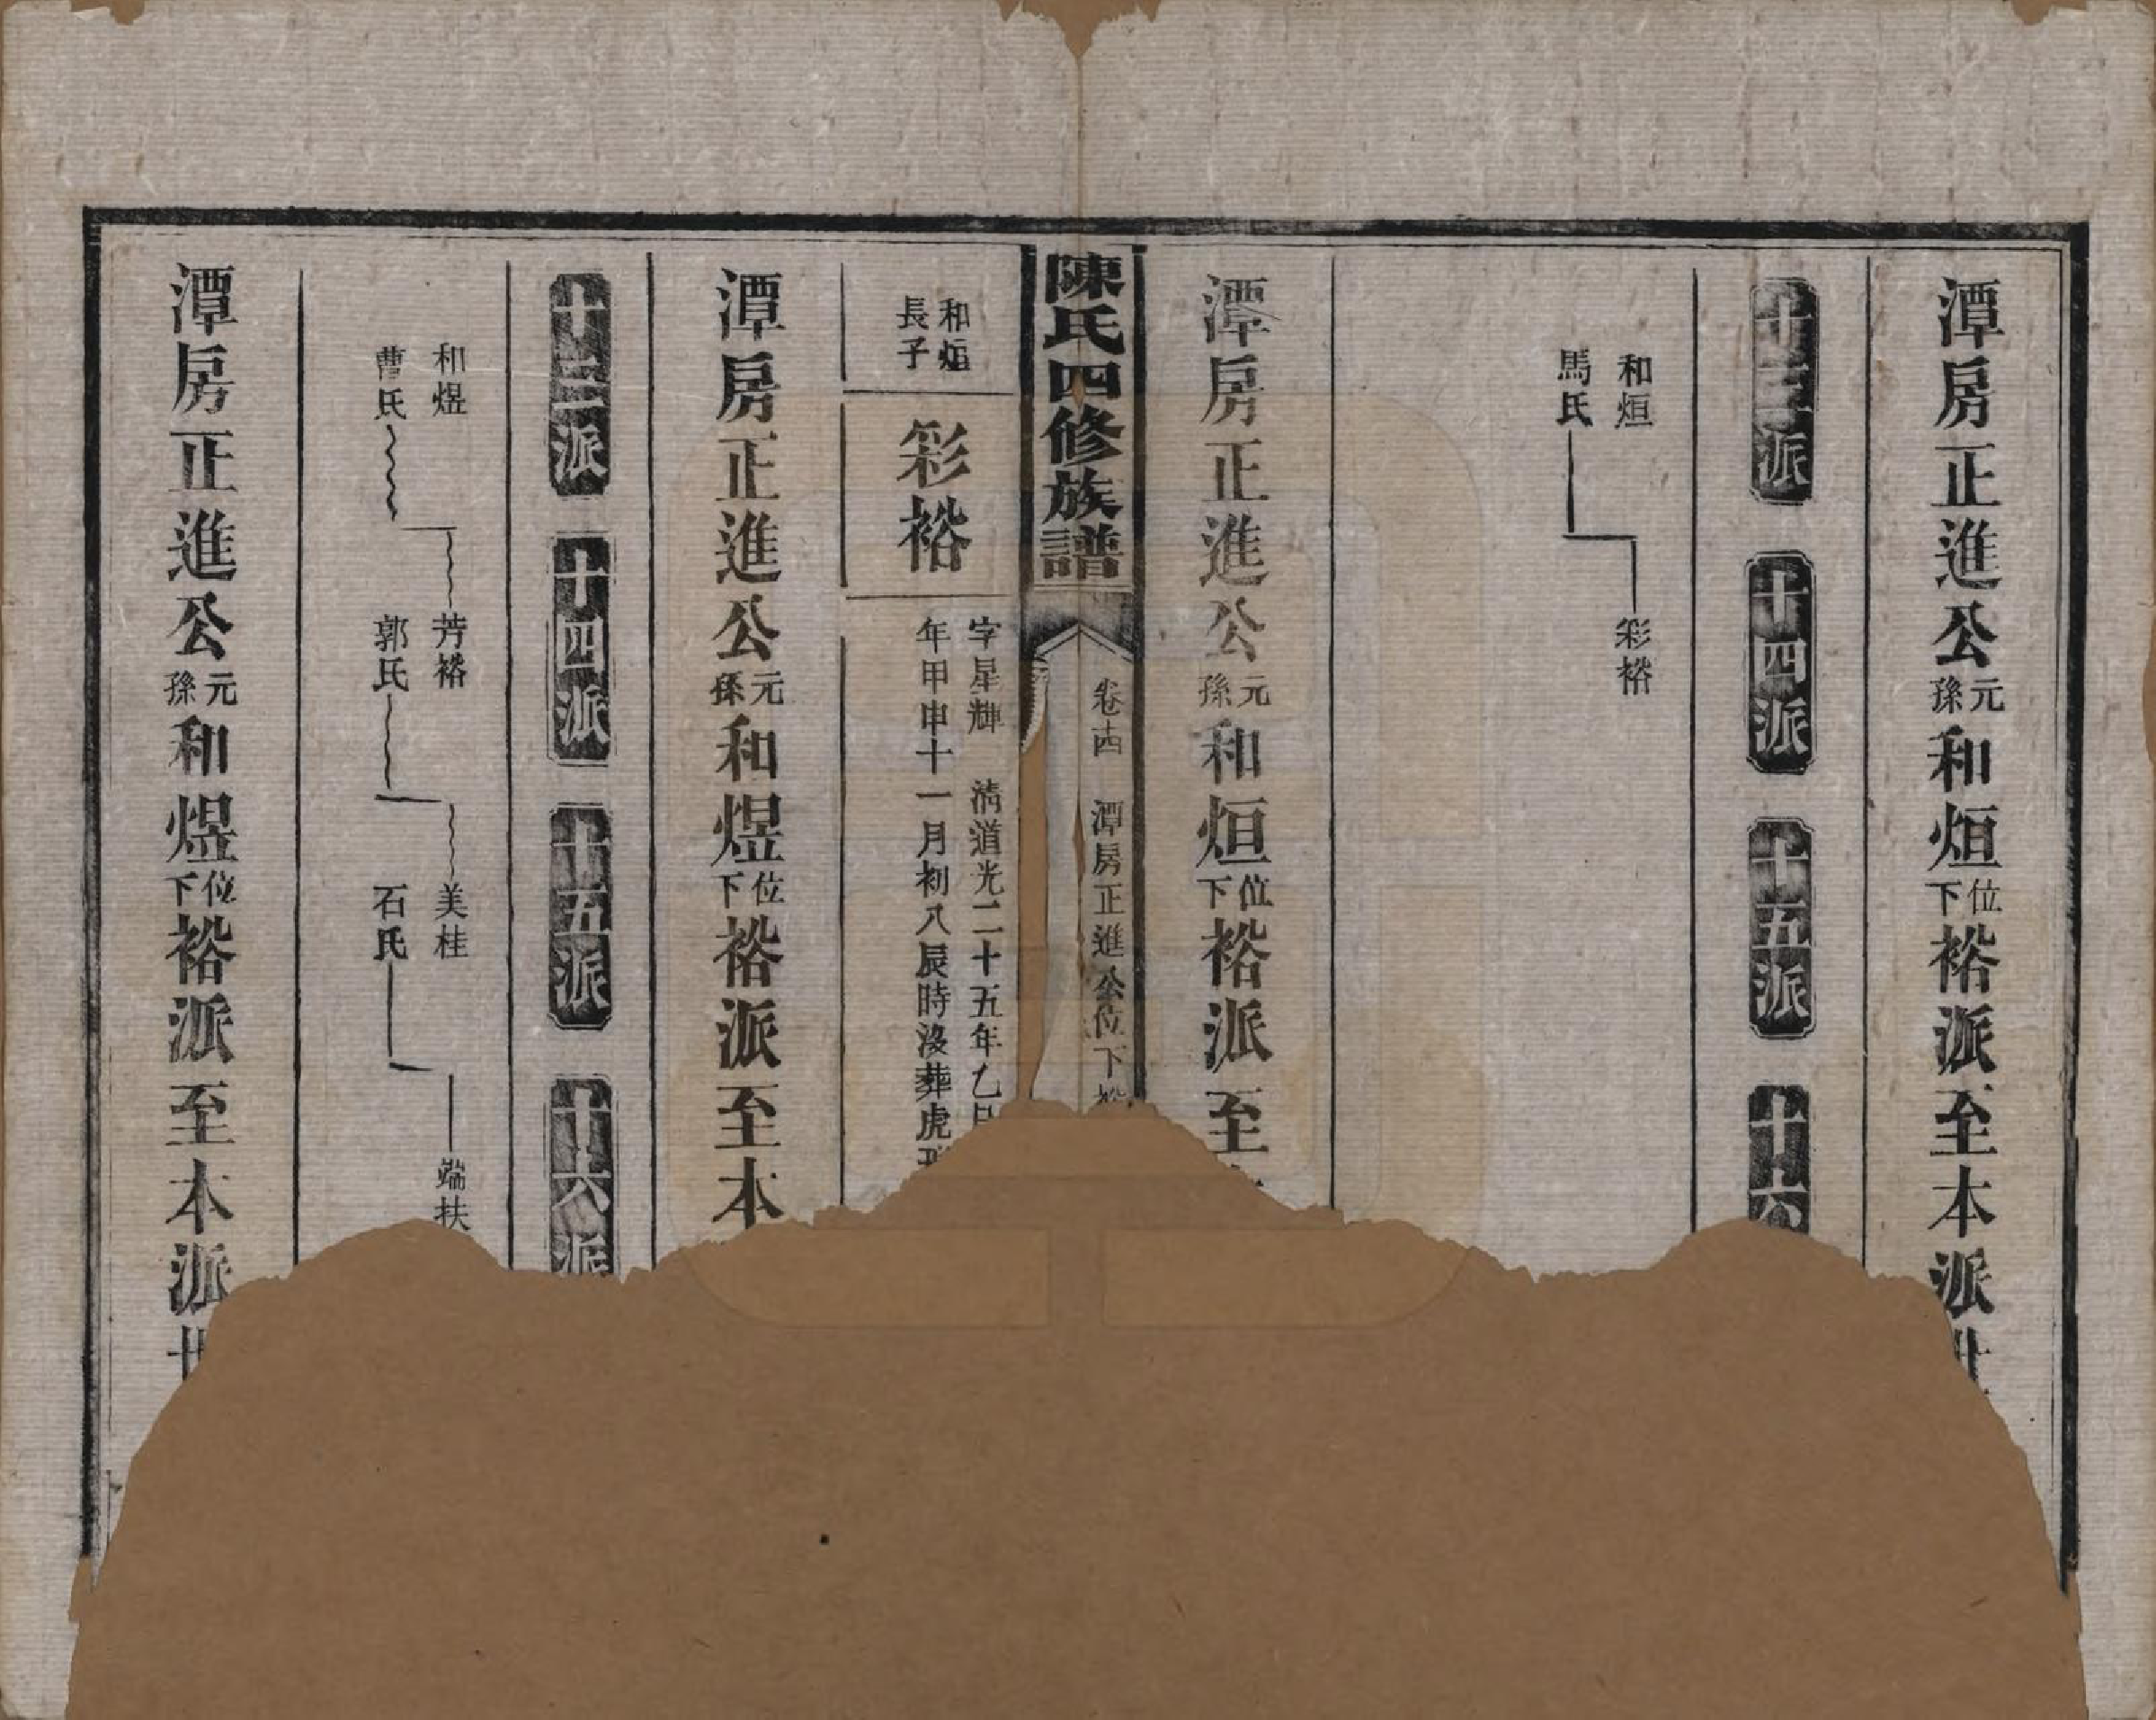 潭房正進公元孫和烜位下裕派至本派
十三派 十四派 十五派 十六
和烜 彩裕
馬氏
潭房正進公元孫和烜位下裕派至
陳氏四修族譜 卷十四 潭房正進公位下
和烜長子
彩裕
字星輝 清道光二十五年乙巳
年甲申十一月初八辰時沒葬虎
潭房正進公元孫和煜位下裕派至本
十三派 十四派 十五派 十六派
和煜 芳裕 美桂 端扶
曹氏 郭氏 石氏
潭房正進公元孫和煜位下裕派至本派世